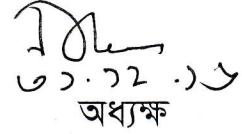 ৩১.১২.১৬
অধ্যক্ষ